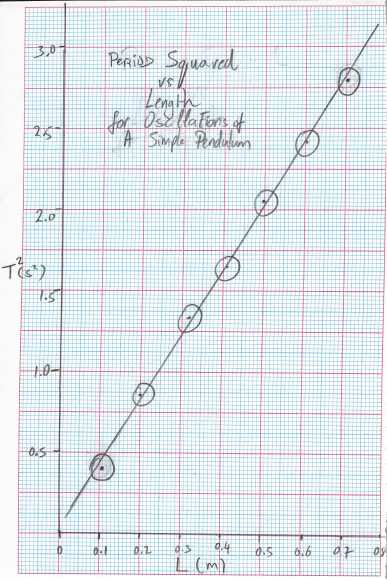 3.0
PERIOD Squared
vs
Length
for Oscillations of
A Simple Pendulum
2.5
2.0
T²(s²)
1.5
1.0
0.5
0 0.1 0.2 0.3 0.4 0.5 0.6 0.7 0.8
L (m)